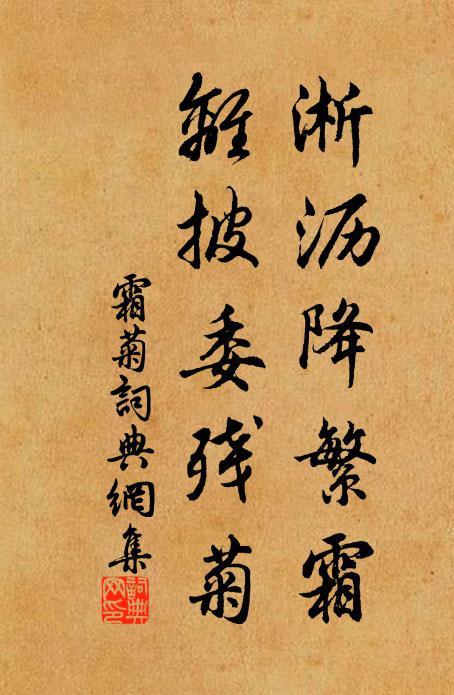 淅沥降繁霜
離披委残菊
霜菊詞典網集
詞典网印